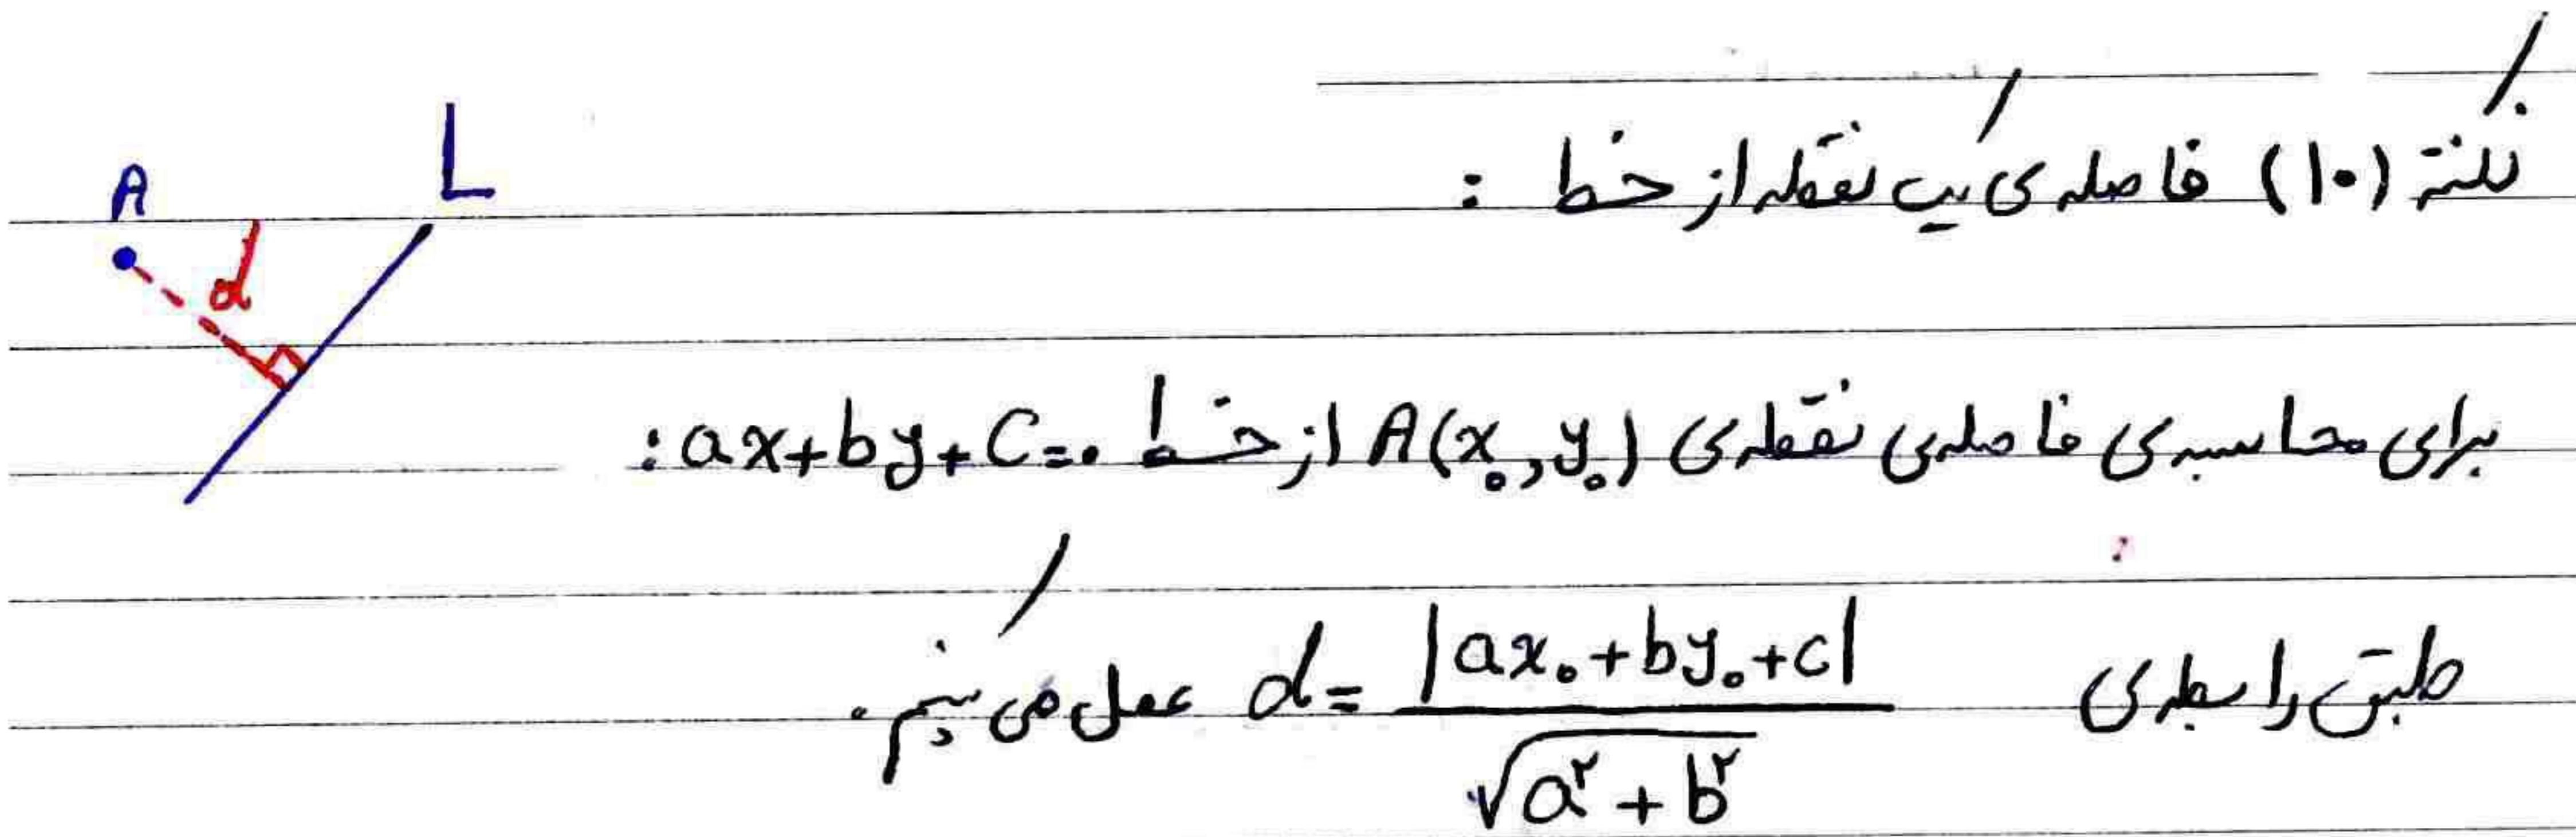 نکته (۱۰) فاصله ی یک نقطه از خط :
A
L
d
برای محاسبه ی فاصله ی نقطه ی A(x₀, y₀) از خط ax+by+C=۰ :
طبق رابطه ی d = |ax₀+by₀+c| / √(a²+b²) عمل می کنیم.